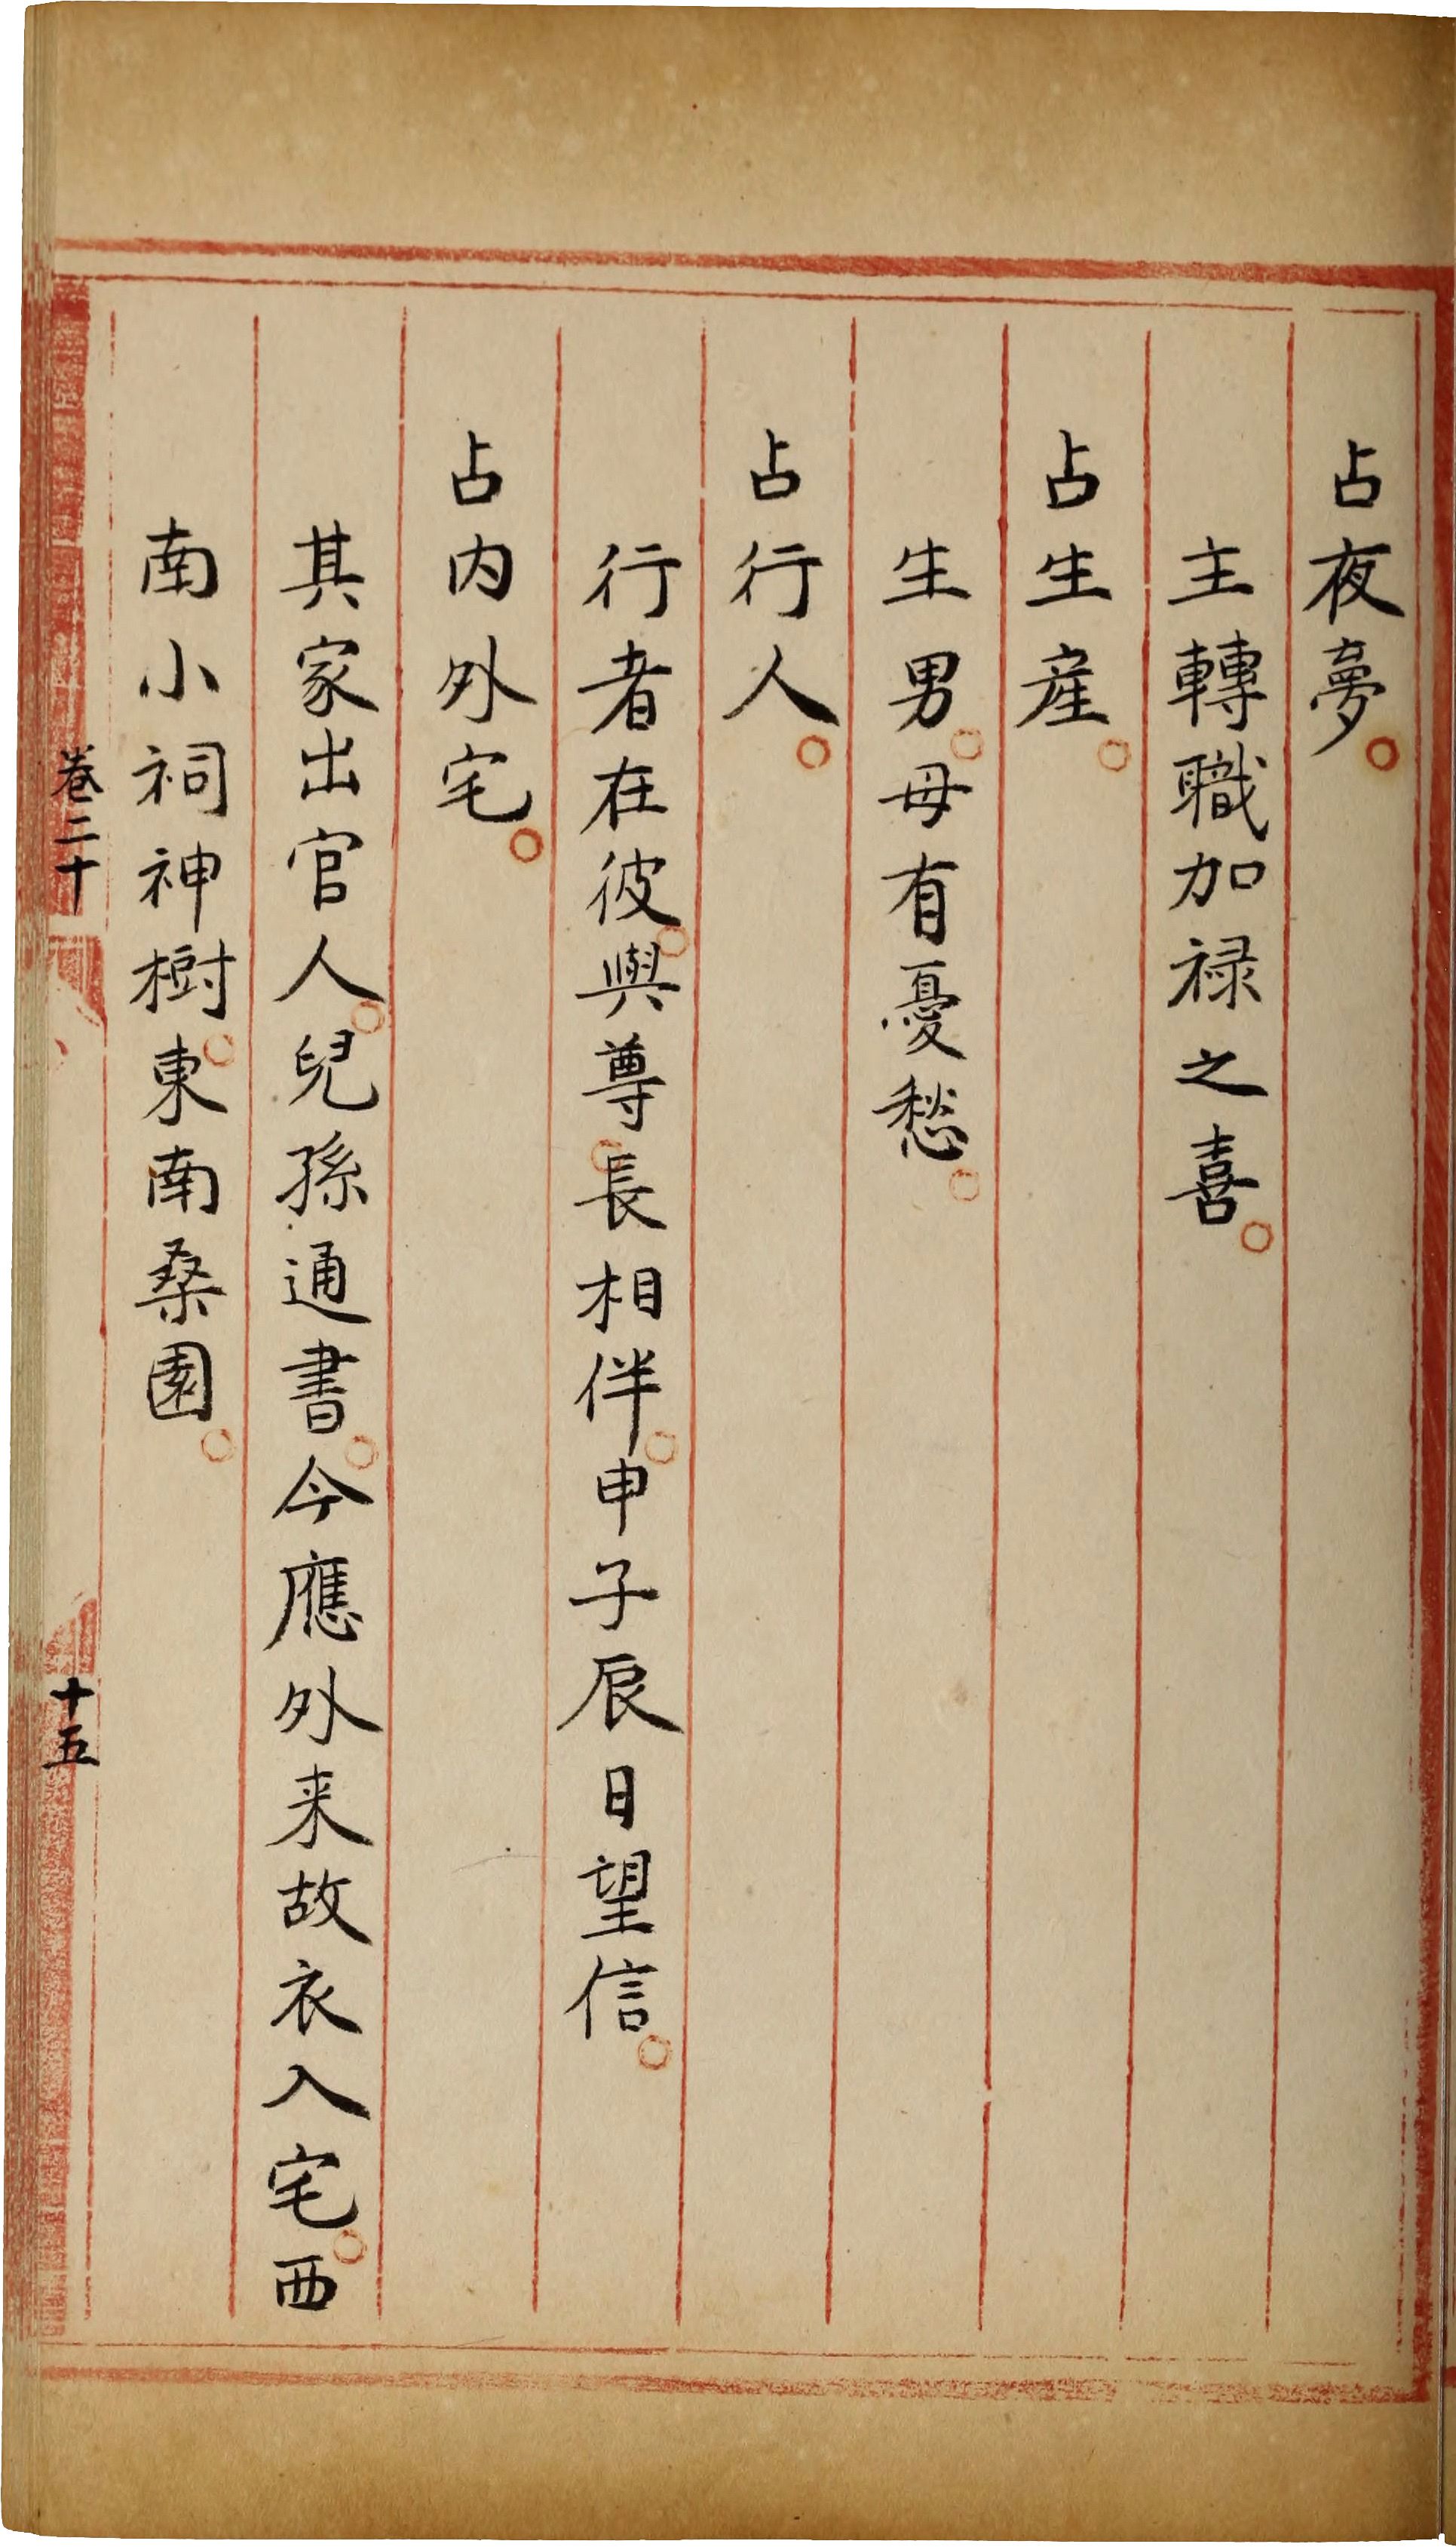 占夜夢。
主轉職加禄之喜。
占生産。
生男。母有憂愁。
占行人。
行者在彼。與尊長相伴。申子辰日望信。
占内外宅。
其家出官人。兒孫通書。今應外来故衣入宅。西
南小祠神樹。東南桑園。
卷二十
十五